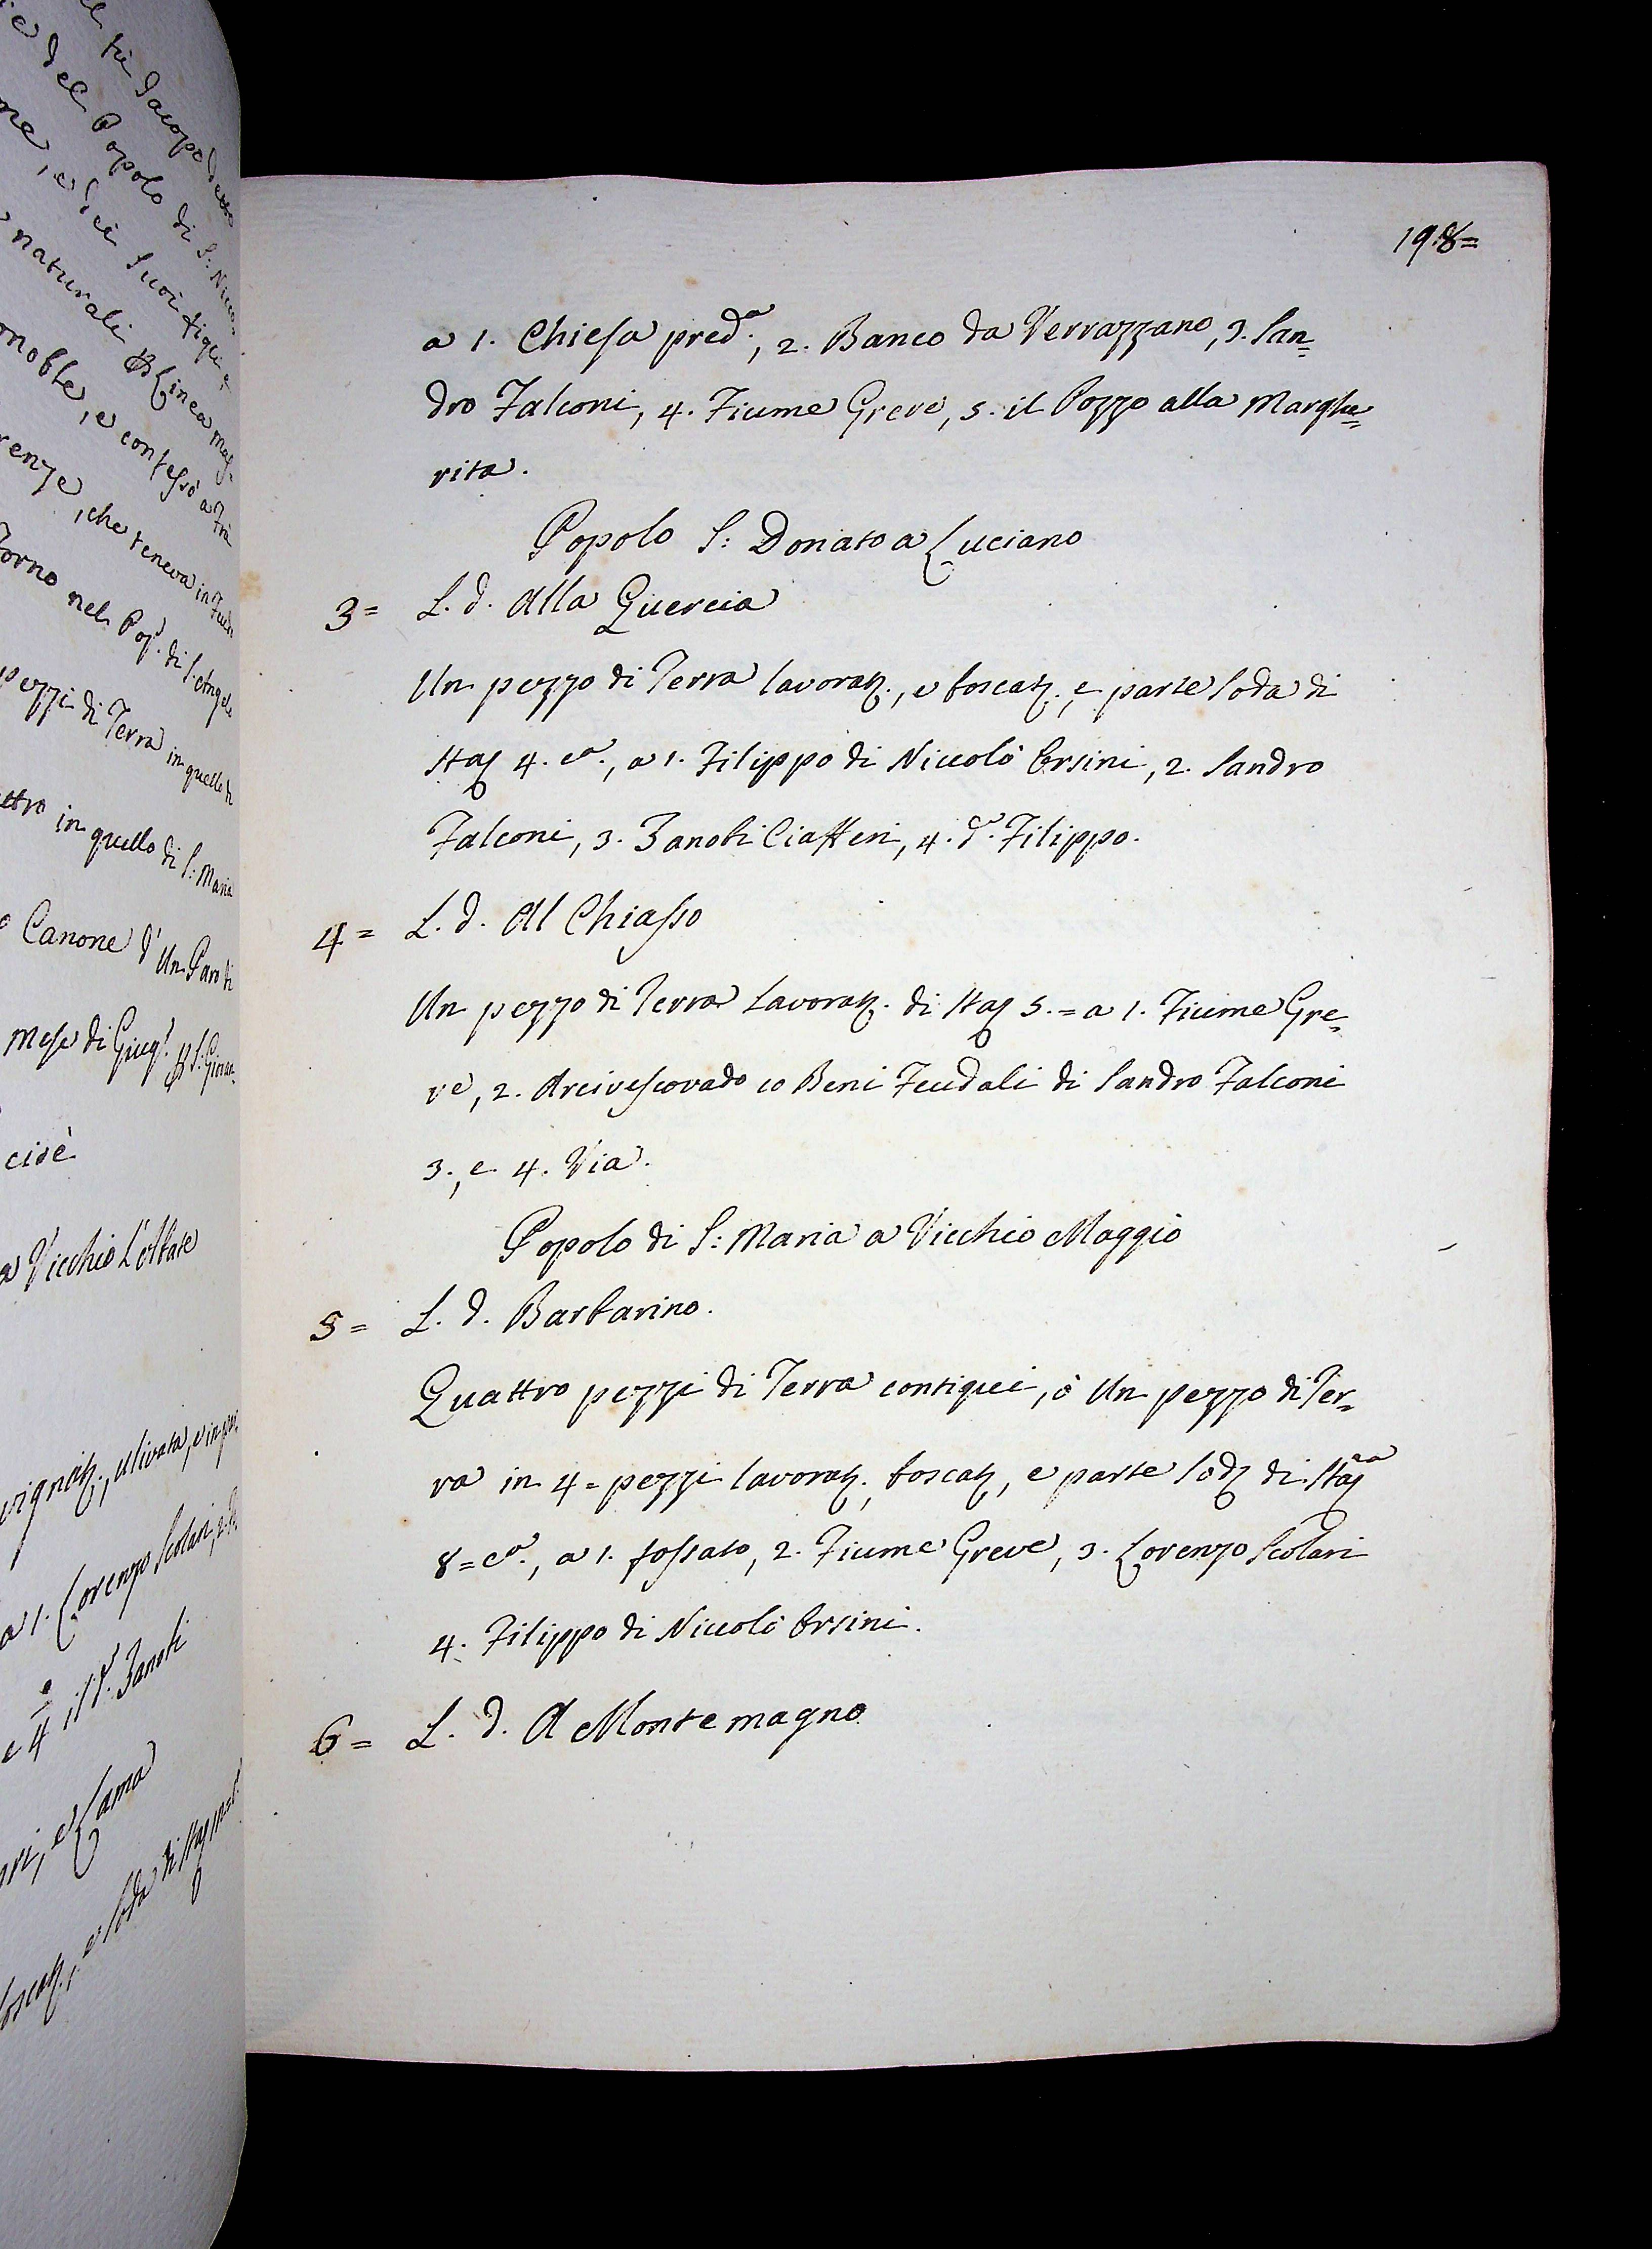 el fù Jacopo detto
ie del Popolo di S: Nicco:
me, e dei suoi figli e
naturali Linea mas:
mobte, e confessò a frà
renze, che teneva in feudo
torno nel Pop.o di S. Angelo
pezzi di Terra in quello di
ettro in quello di S: Maria
Canone d' Un Paro di
Mese di Giug.o S: Giovan:
cioè
a Vicchio L'Abate
vignat., ulivata, e in par
a 1. Lorenzo Scolari, 2.
e 4 il d.o Zanobi
ari, e Lama
boscat., e soda di Staj
198=
a 1. Chiesa pred.a, 2. Banco da Verrazzano, 3. San=
dro Falconi, 4. Fiume Greve, 5. il Pozzo alla Marghe=
rita.
Popolo S: Donato a Luciano
3= L. d. Alla Quercia
Un pezzo di Terra lavorat., e boscat., e parte soda di
Staj 4. c.a, a 1. Filippo di Niccolò Orsini, 2. Sandro
Falconi, 3. Zanobi Ciafferi, 4. d.o Filippo.
4= L. d. Al Chiasso
Un pezzo di Terra Lavorat. di Staj 5.= a 1. Fiume Gre=
ve, 2. Arcivescovado co Beni Feudali di Sandro Falconi
3., e 4. Via.
Popolo di S: Maria a Vicchio Maggio
5= L. d. Barbarino.
Quattro pezzi di Terra contigui, ò Un pezzo di Ter=
ra in 4= pezzi lavorat., boscat, e parte sod. di Staj.a
8= c.a, a 1. fossato, 2. Fiume Greve, 3. Lorenzo Scolari
4. Filippo di Niccolò Orsini.
6= L. d. A Monte magno